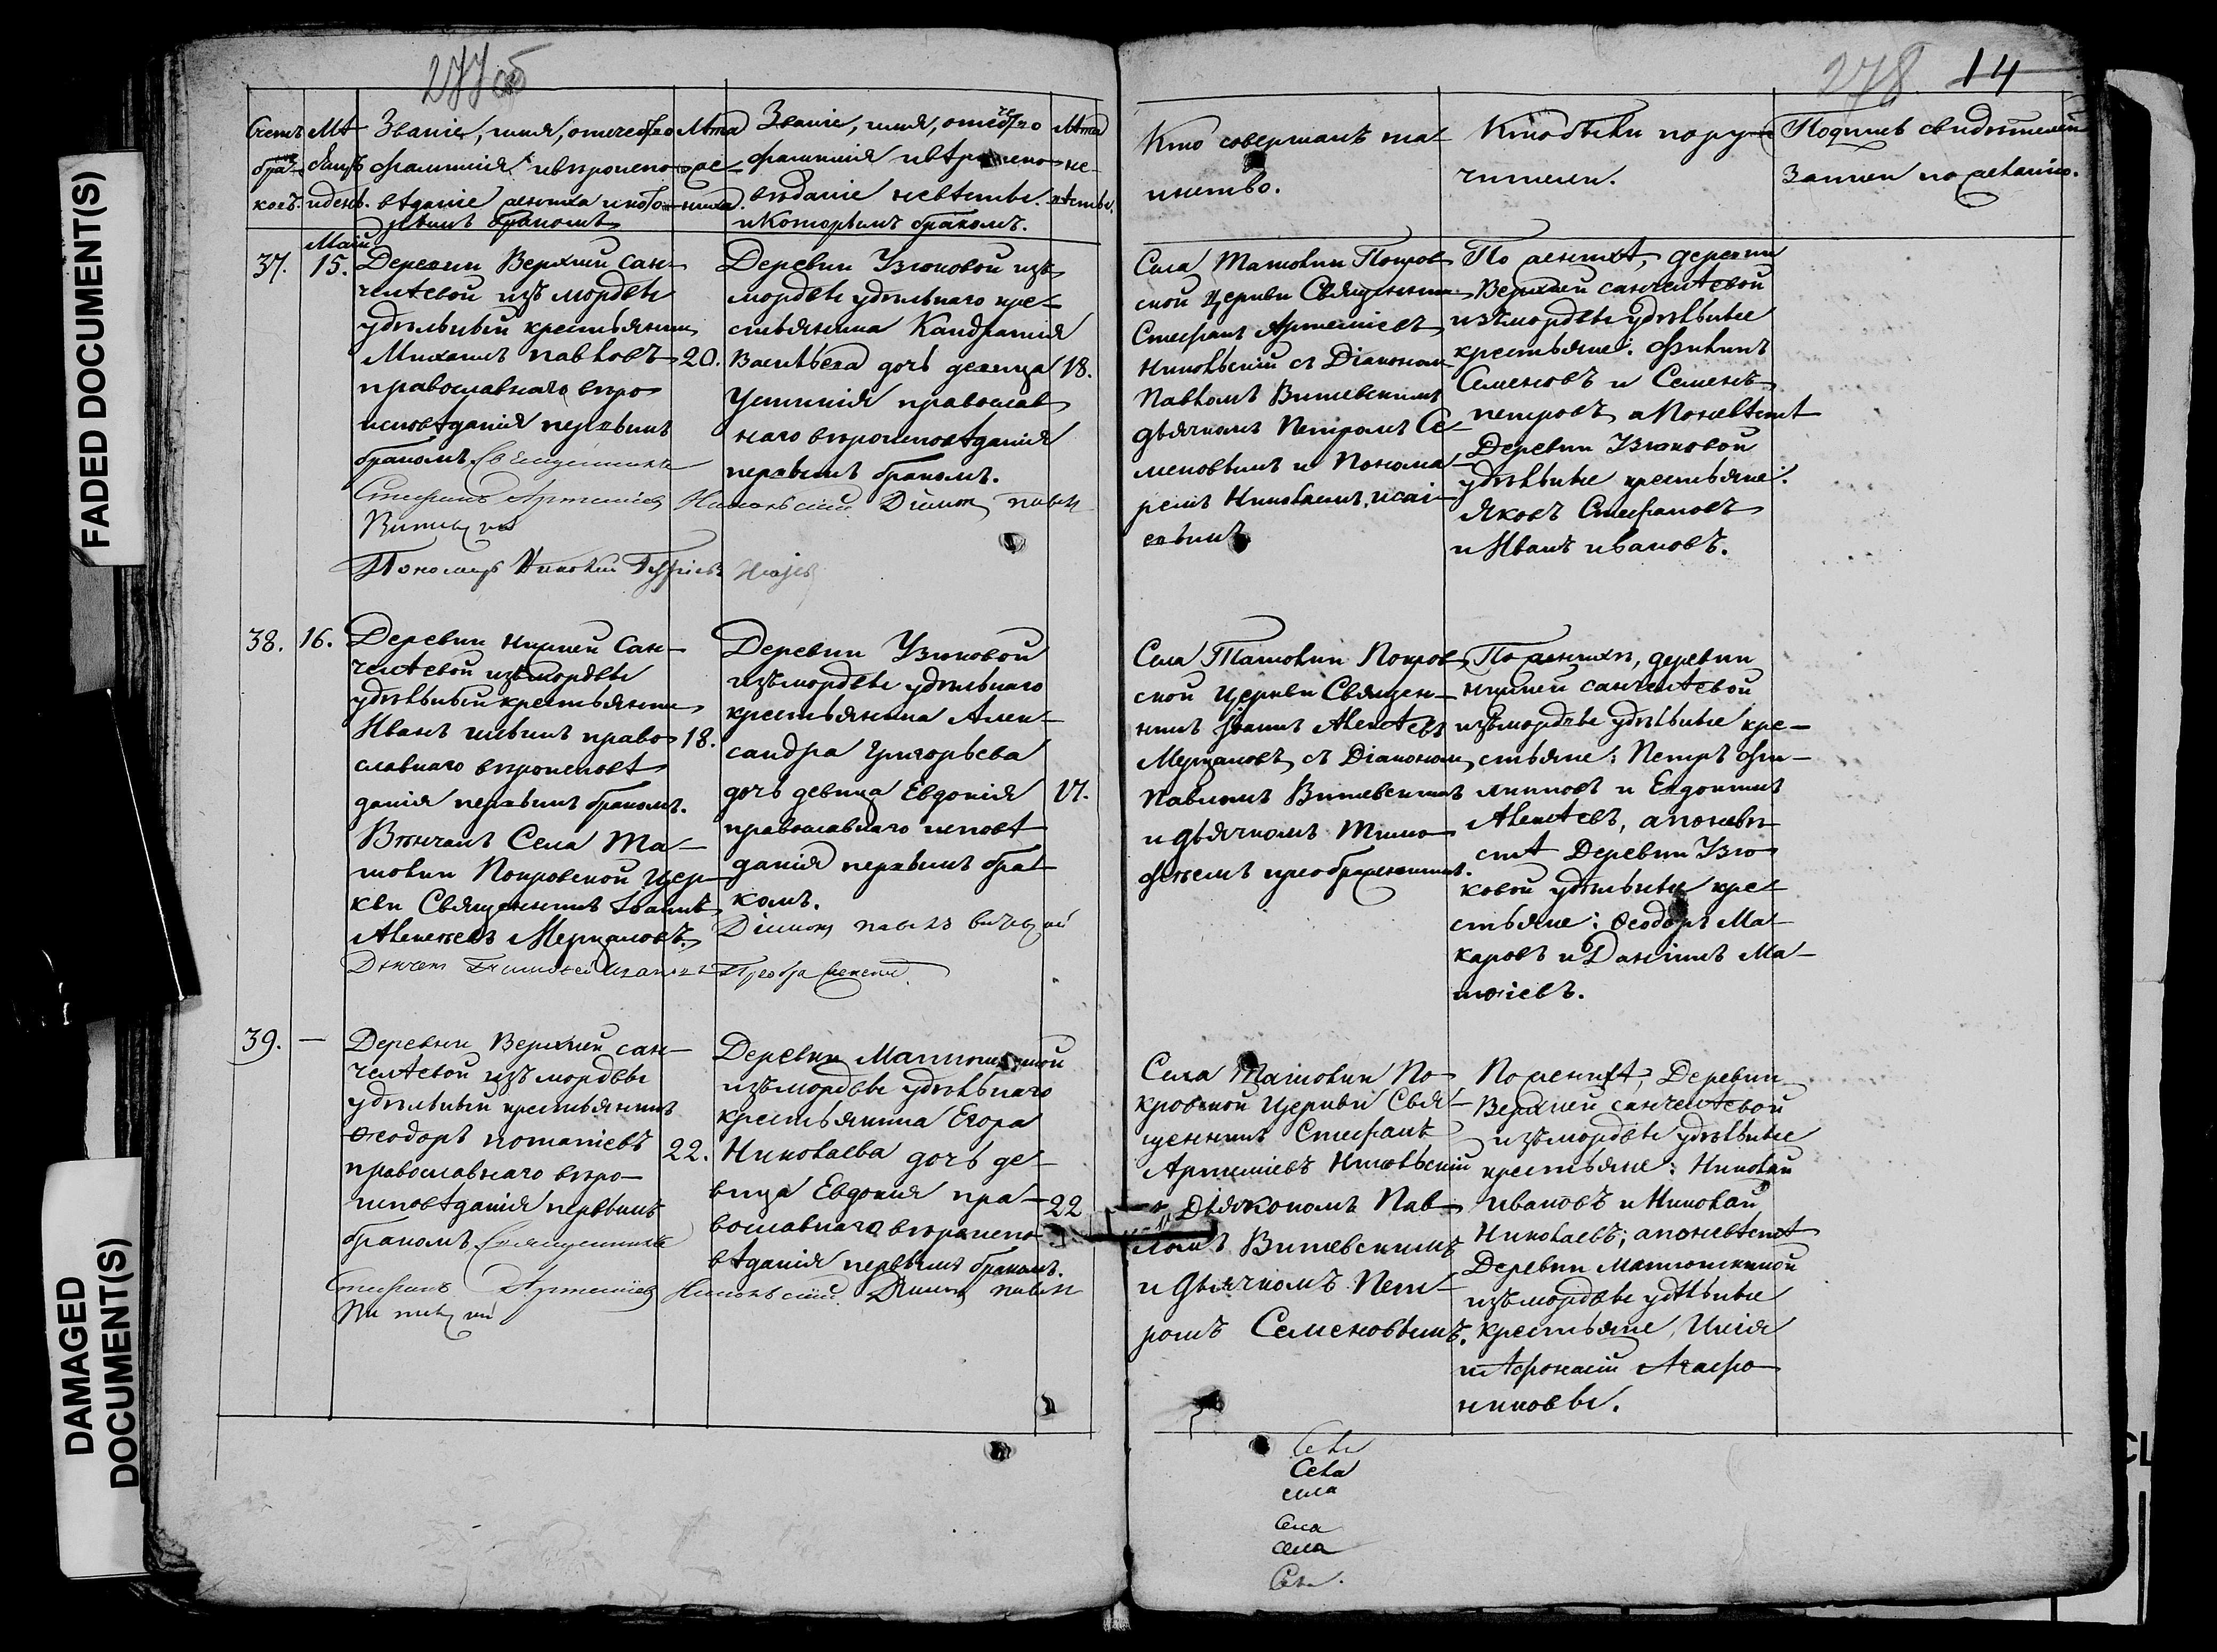 FADED DOCUMENT(S)
DAMAGED
DOCUMENT(S)
277об
Счетъ
бра-
ковъ.
Мѣ-
сяцъ
и день.
Званіе, имя, отечество
фамилія и вѣроиспо-
вѣданіе жениха и кото-
рымъ бракомъ
Лѣта
же-
ниха.
Званіе, имя, отечество
фамилія и вѣроиспо-
вѣданіе невѣсты.
и которымъ бракомъ.
Лѣта
не-
вѣсты.
37.
Маій
15.
Деревни Верхней сан-
челѣевой изъ мордвы
удѣльный крестьянинъ
Михаилъ павловъ
православнаго вѣро
исповѣданія первымъ
бракомъ. Священникъ
Стефанъ Артеміевъ Никольскій Діаконъ павелъ
20.
Деревни Узюковой изъ
мордвы удѣльнаго кре-
стьянина Кандратія
Васильева дочь девица
Устинія православ
наго вѣроисповѣданія
первымъ бракомъ.
18.
Пономарь Николай
38.
16.
Деревни нижней Сан-
челѣевой изъ мордвы
удѣльный крестьянинъ
Иванъ ильинъ право
славнаго вѣроисповѣ
данія первымъ бракомъ.
Вѣнчалъ Села Та-
шолки Покровской Цер-
кви Священникъ Іоаннъ
Алексѣевъ Мерцаловъ.
18.
Деревни Узюковой
изъ мордвы удѣльнаго
крестьянина Алек-
сандра Григорьева
дочь девица Евдокія
православнаго исповѣ
данія первымъ бра-
комъ.
17.
Діаконъ павелъ
Преображенскій
39.
—
Деревни Верхней сан-
челѣевой изъ мордвы
удѣльный крестьянинъ
Ѳеодоръ потапіевъ
православнаго вѣро-
исповѣданія первымъ
бракомъ. Священникъ
Стефанъ Артеміевъ Никольскій. Діаконъ павелъ
22.
Деревни Матюшкиной
изъ мордвы удѣльнаго
крестьянина Егора
Николаева дочь де-
вица Евдокія пра-
вославнаго вѣроиспо
вѣданія первымъ бракомъ.
22
278 14
Кто совершалъ та-
инство.
Кто были пору-
чители.
Подпись свидѣтелей
записи по желанію.
Села Ташолки Покров
ской Церкви Священникъ
Стефанъ Артеміевъ
Никольскій съ Діакономъ
Павломъ Витевскимъ
дьячкомъ Петромъ Се
меновымъ и Понома
ремъ Николаемъ исаі
евымъ
По женихѣ, деревни
Верхней санчелѣевой
изъ мордвы удѣльные
крестьяне: Филипъ
Семеновъ и Семенъ
петровъ, а По невѣстѣ
Деревни Узюковой
удѣльные крестьяне:
Яковъ Стефановъ
и Иванъ ивановъ.
Села Ташолки Покров
ской Церкви Священ-
никъ Іоаннъ Алексѣевъ
Мерцаловъ съ Діакономъ
Павломъ Витевскимъ
и дьячкомъ Тимо
феемъ преображенскимъ.
По женихѣ, деревни
нижней санчелѣевой
изъ мордвы удѣльные кре-
стьяне: Петръ фи-
липовъ и Евдокимъ
Алексѣевъ, а по невѣ
стѣ Деревни Узю
ковой удѣльные кре-
стьяне: Ѳеодоръ Ма-
каровъ и Даніилъ Ма-
Села Ташолки По-
кровской Церкви Свя-
щенникъ Стефанъ
Артеміевъ Никольскій
съ Діякономъ Пав-
ломъ Витевскимъ
и дьячкомъ Пет-
ромъ Семеновымъ.
По женихѣ, Деревни
Верхней санчелѣевой
изъ мордвы удѣльные
крестьяне: Николай
ивановъ и Николай
Николаевъ; а по невѣстѣ
Деревни матюшкиной
изъ мордвы удѣльные
крестьяне, Илія
и Афонасій Агафо
никовы.
Села
Села
села
Села
села
Села.